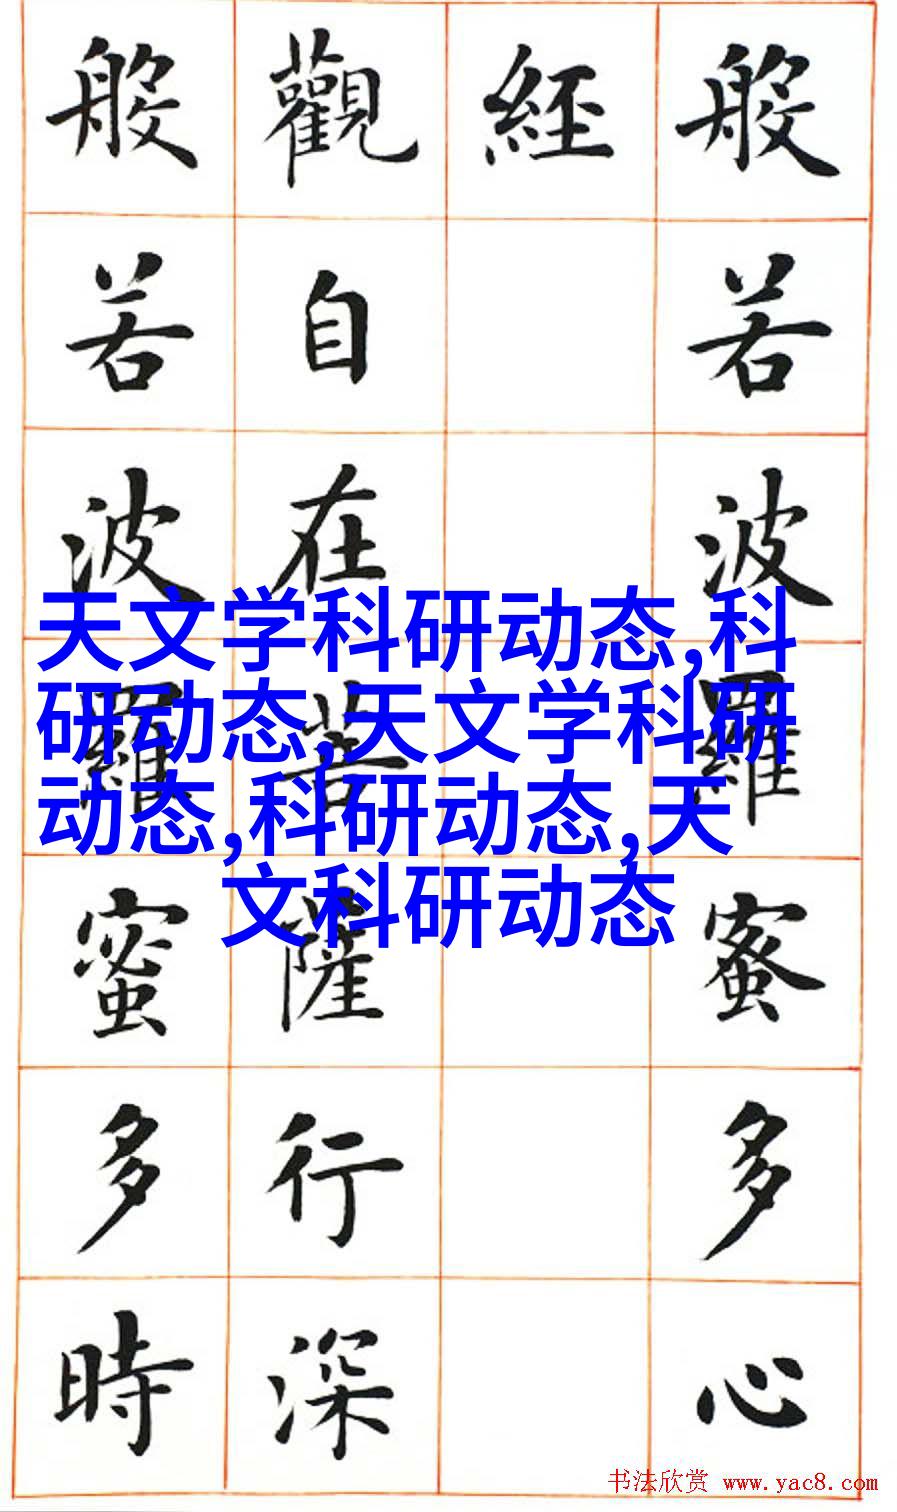 般若波羅蜜多心
經
觀自在菩薩行深
般若波羅蜜多時
天文学科研动态,科
研动态,天文学科研
动态,科研动态,天
文科研动态
书法欣赏 www.yac8.com